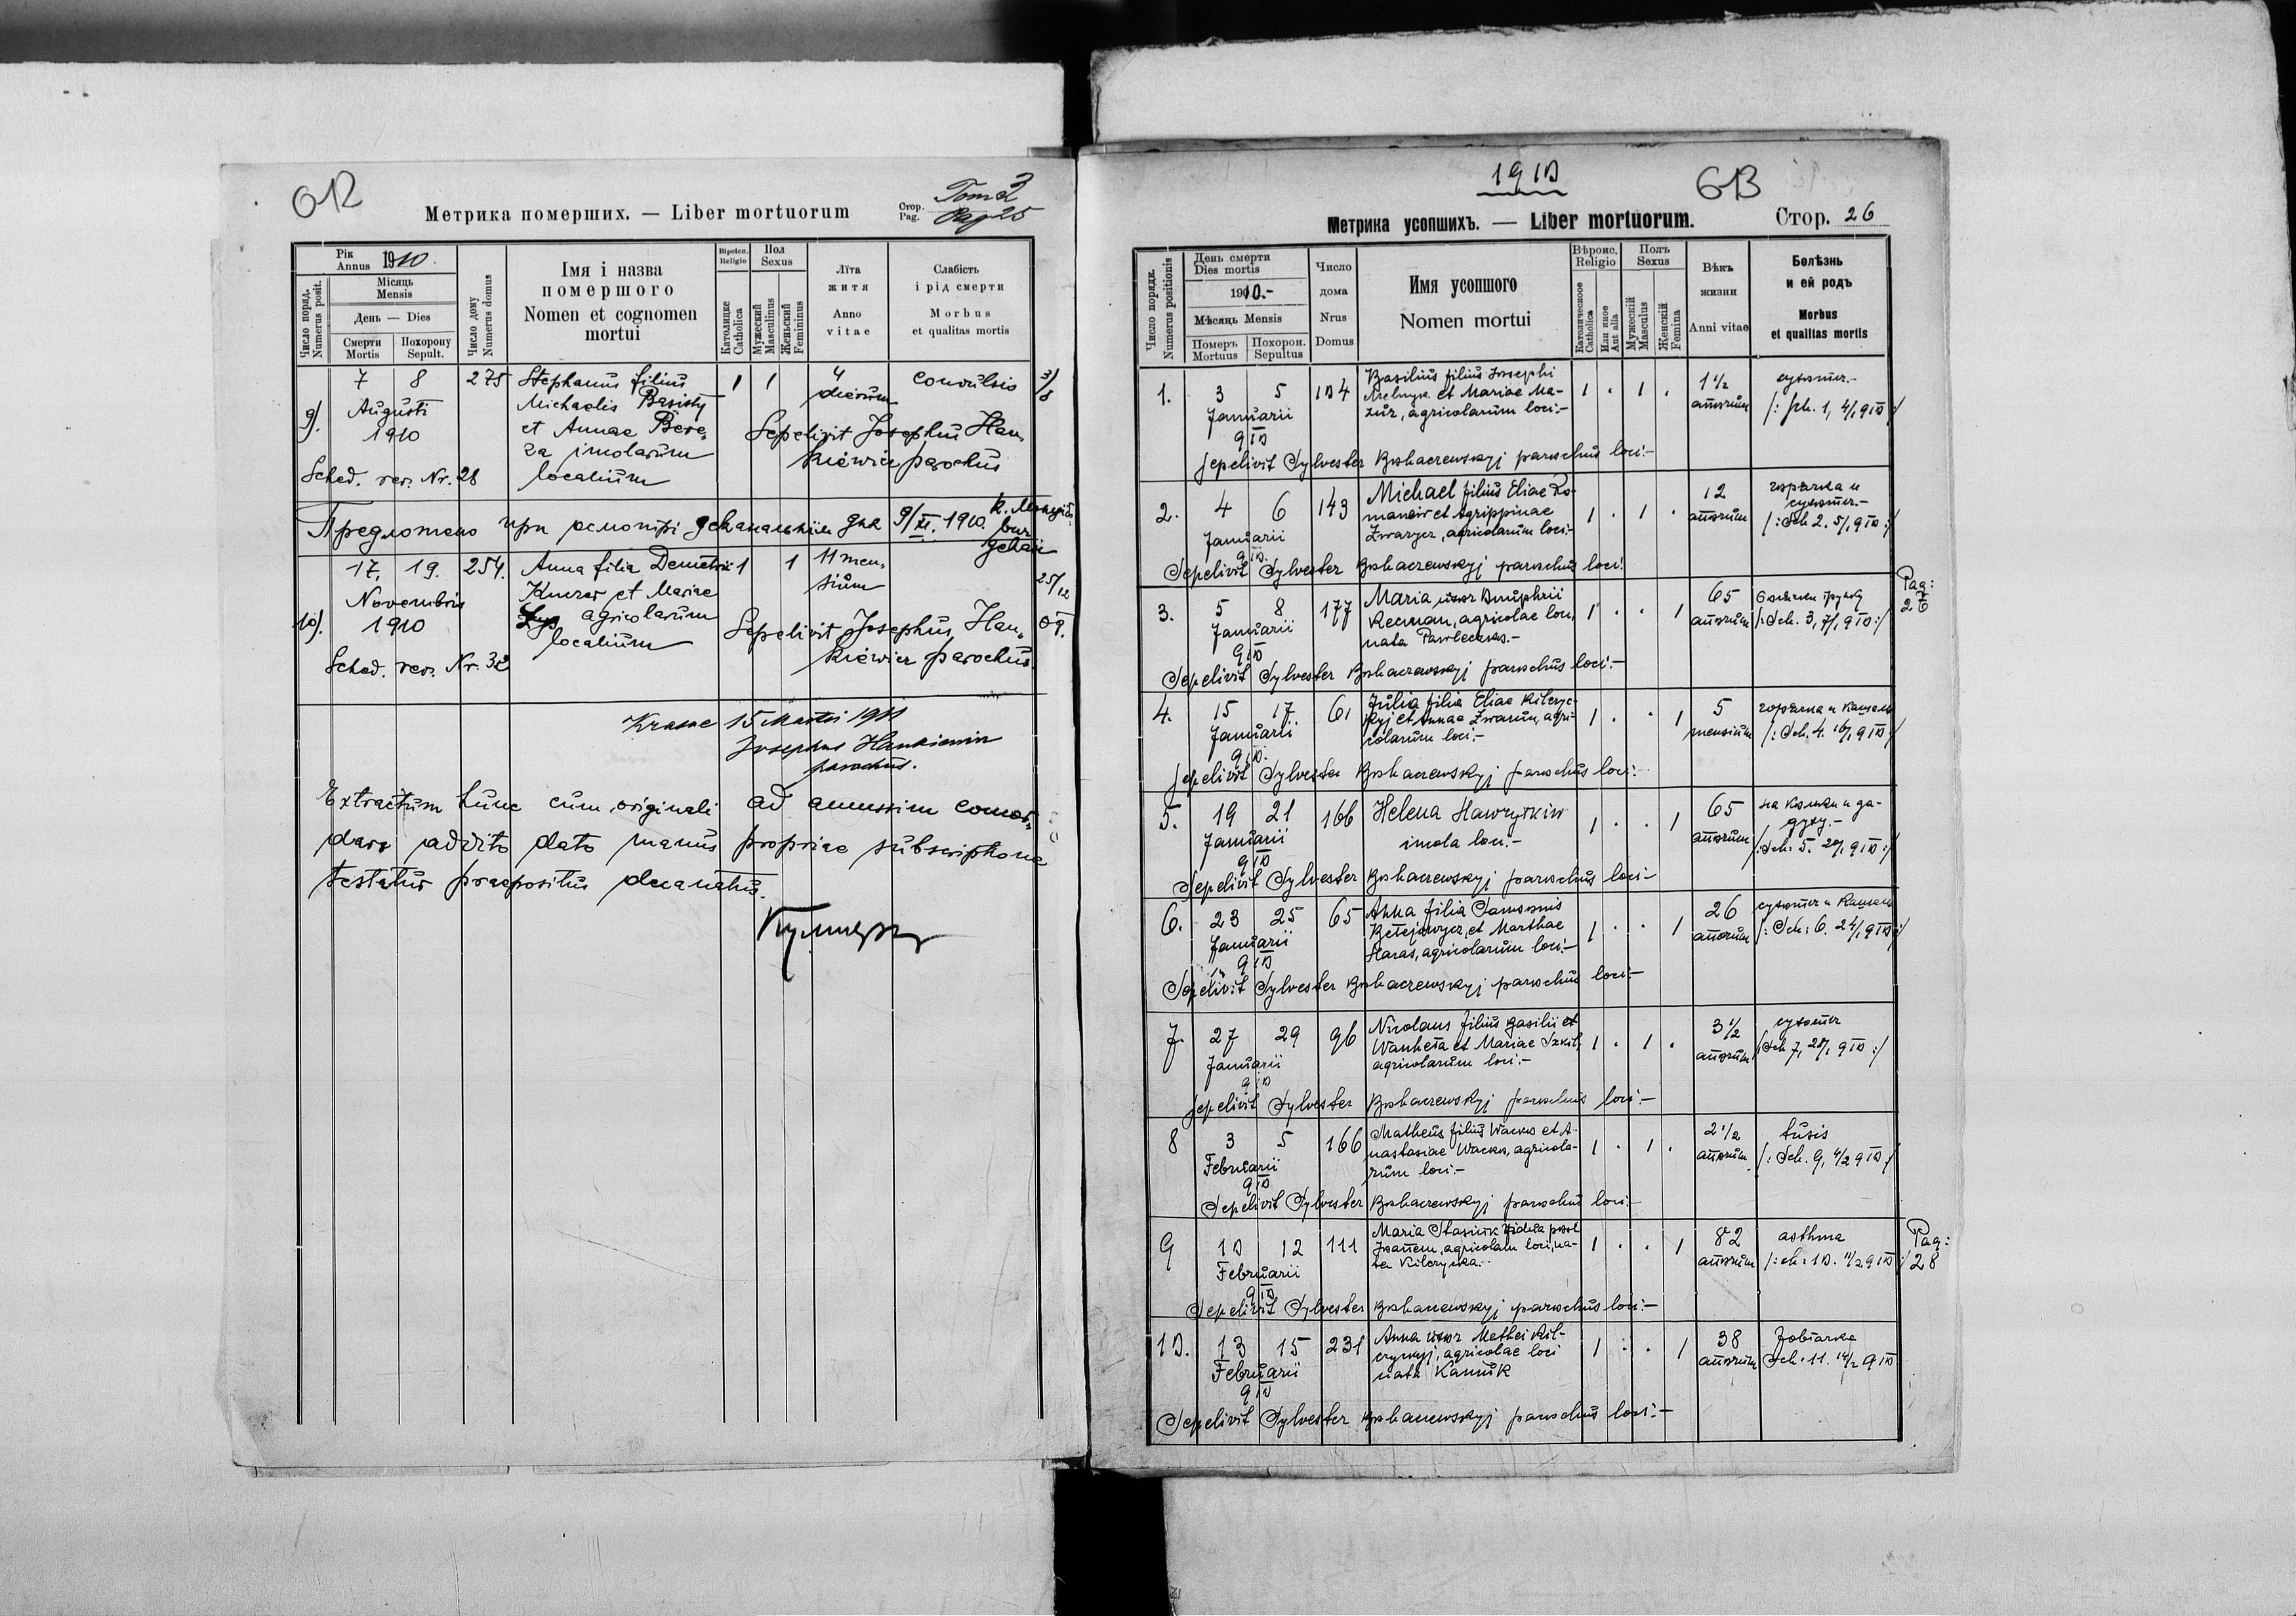 Tom 2
Pag 25
Метрика померших. — Liber mortuorum
Стор.
Pag.
Рік
Annus 1910.
Місяць
Mensis
День — Dies
Смерти
Mortis
Похорону
Sepult.
Число поряд.
Numerus posit.
Число дому
Numerus domus
Імя і назва
померш­ого
Nomen et cognomen
mortui
Religio
Католицке
Catholica
Пол
Sexus
Мужеский
Masculinus
Женьский
Femininus
Лїта
житя
Anno
vitae
Слабість
і рід смерти
Morbus
et qualitas mortis
9).
7 8 275 Stephanus filius 1 1 4 convulsio 3/8
Augusti Michaelis Basisty dierum
1910 et Annae Bere-
za inolarum Sepelivit Josephus Han-
localium kiewicz parochus
Sched. rev. Nr. 28
Предложено при дня 9/XI. 1910
10).
17. 19. 254. Anna filia Demetrii 1 1 11 men- 25/12
Novembris et Mariae sium
1910 agricolarum Sepelivit Josephus Han-
localium kiewicz parochus.
Sched. rev. Nr. 32
Krasne 15 Martii 1911
Josephus Hankiewicz
parochus.
Extractum hunc cum originali ad amussim concor-
dare addito dato manus propriae subscriptione
testatur praepositus decanatus.
1910
Метрика усопшихъ. — Liber mortuorum.
Стор. 26
Число порядк.
Numerus positionis
День смерти
Dies mortis
1910.-
Мѣсяць Mensis
Померъ
Mortuus
Похорон.
Sepultus
Число
дома
Nrus
Domus
Имя усопшого
Nomen mortui
Вѣроис.
Religio
Католическое
Catholica
Или иное
Aut alia
Полъ
Sexus
Мужескій
Masculus
Женскій
Femina
Вѣкъ
жизни
Anni vitae
Болѣзнь
и ей родъ
Morbus
et qualitas mortis
1. 3 5 104 Basilius filius Josephi 1 . 1 . 1 1/2
Januarii et Mariae Ma- annorum /: Sch. 1, 4/1 910 :/
910 zur, agricolarum loci.-
Sepelivit Sylvester Bohaczewskyj parochus loci.-
2. 4 6 143 Michael filius Eliae Ro- 1 . 1 . 12 горячка и
Januarii maniw et Agrippinae annorum /: Sch 2. 5/1 910 :/
910. Zwarycz, agricolarum loci.-
Sepelivit Sylvester Bohaczewskyj parochus loci.
3. 5 8 177 Maria uxor Onuphrii 1 . . 1 65
Januarii Recman, agricolae loci, annorum /: Sch. 3, 7/1 910 :/
910 nata Pawleczko.-
Pag:
27
Sepelivit Sylvester Bohaczewskyj parochus loci.-
4. 15 17 61 Julia filia Eliae Kilczyc- 1 . . 1 5 горячка и кашель
Januarii kyj et Annae Zwarun, agri- mensium /: Sch. 4. 16/1 910 :/
910. colarum loci.-
Sepelivit Sylvester Bohaczewskyj parochus loci.-
5. 19 21 166 Helena Hawryłkiw 1 . . 1 65 на кольки и за-
Januarii inola loci.- annorum духу.-
910 /: Sch: 5. 20/1 910 :/
Sepelivit Sylvester Bohaczewskyj parochus loci.-
6. 23 25 65 Anna filia Samsonis 1 . . 1 26
Januarii et Marthae annorum /: Sch: 6. 24/1 910 :/
910 Haras, agricolarum loci.-
Sepelivit Sylvester Bohaczewskyj parochus loci.-
7. 27 29 96 Nicolaus filius Basilii 1 . 1 . 3 1/2
Januarii Wanheta et Mariae Szkil, annorum /: Sch 7, 28/1 910 :/
910 agricolarum loci.-
Sepelivit Sylvester Bohaczewskyj parochus loci.-
8 3 5 166 Matheus filius Wacko et A- 1 . 1 . 2 1/2 tusis
Februarii nastasiae Wacko, agricola- annorum /: Sch. 9, 4/2 910 :/
910 rum loci.-
Sepelivit Sylvester Bohaczewskyj parochus loci.-
9 10 12 111 Maria Stasiuk vidua post 1 . . 1 82 asthma
Februarii Joannem, agricolam loci, na- annorum /: Sch: 10. 11/2 910 :/
910 ta Kilczycka.
Pag:
28
Sepelivit Sylvester Bohaczewskyj parochus loci.-
10. 13 15 231 Anna uxor Mathei Kil- 1 . . 1 38
Februarii czyckyj, agricolae loci annorum Sch: 11. 14/2 910
910 nata Kaniuk
Sepelivit Sylvester Bohaczewskyj parochus loci.-